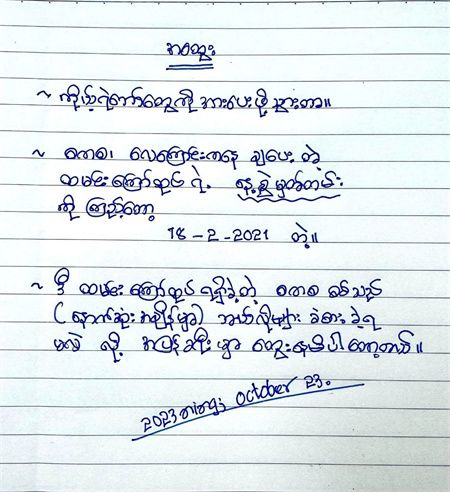 အတွေး
~ ကိုယ့်ရဲဘော်တွေကို အားပေးဖို့ သွားတာ။
~ စကစ၊ လေကြောင်းကနေ ချပေး တဲ့
ထမင်းကြော်ထုပ် ရဲ့ နေ့စွဲမှတ်တမ်း
ကို ကြည့်တော့
18 - 2 - 2021 တဲ့။
~ ဒီ ထမင်းကြော်ထုပ် ရရှိခဲ့တဲ့ စကစ စစ်သည်
( နောက်ဆုံးအချိန်မှာ ) ဘယ်လိုများ ခံစားခဲ့ရ
မလဲ လို့ အပြန်ခရီးမှာ တွေးနေမိပါတော့တယ်။
2023 october 23.